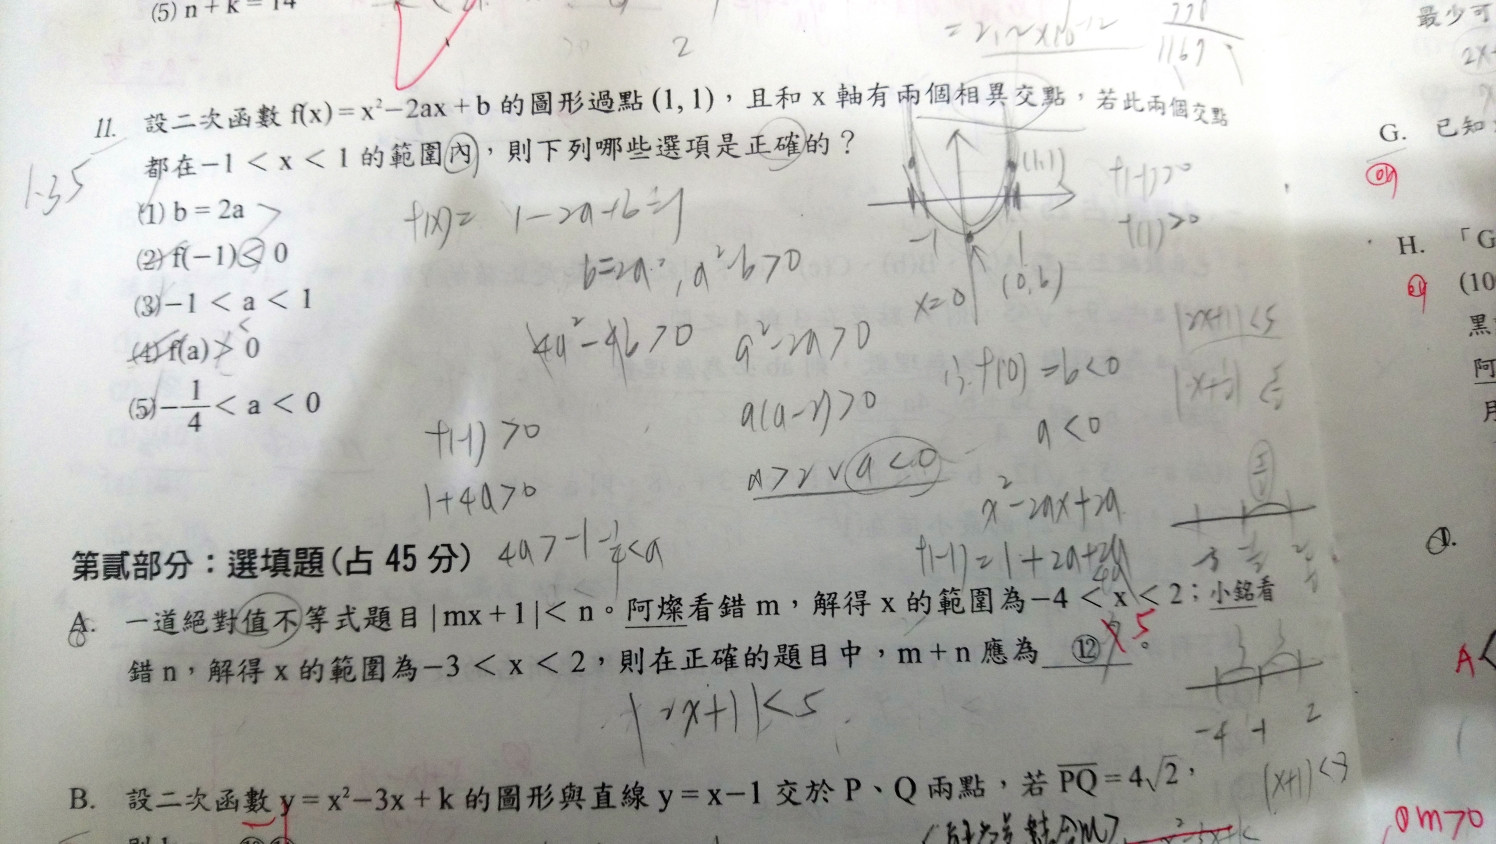 (5) n + k = 14
2
= 2.2×10⁻¹²
1167
最少可
11. 設二次函數 f(x) = x²－2ax + b 的圖形過點 (1, 1)，且和 x 軸有兩個相異交點，若此兩個交點
都在 －1 < x < 1 的範圍內，則下列哪些選項是正確的？
1.35
(1) b = 2a
(2) f(－1) < 0
(3) －1 < a < 1
(4) f(a) > 0
(5) －1/4 < a < 0
f(x)= 1-2a+b=1
b=2a, a²-b>0
4a²-4b>0 a²-2a>0
a(a-2)>0
a>2 ∨ a<0
f(-1)>0
1+4a>0
4a>-1 -1/4<a
(1,1)
-1 1
x=0 (0,b)
f(-1)>0
f(1)>0
∴ f(0)=b<0
a<0
x²-2ax+2a
f(-1)=1+2a+2a
4a
|2x+1|<5
第貳部分：選填題（占 45 分）
A. 一道絕對值不等式題目 | mx + 1 | < n。阿燦看錯 m，解得 x 的範圍為 －4 < x < 2；小銘看
錯 n，解得 x 的範圍為 －3 < x < 2，則在正確的題目中，m + n 應為 ⑫ 。
5
|2x+1|<5
3 3
-4 -1 2
|x+1|<3
B. 設二次函數 y = x²－3x + k 的圖形與直線 y = x－1 交於 P、Q 兩點，若 PQ = 4√2，
G. 已知
H. 「G
(10
黑
阿
月
A<
m>0